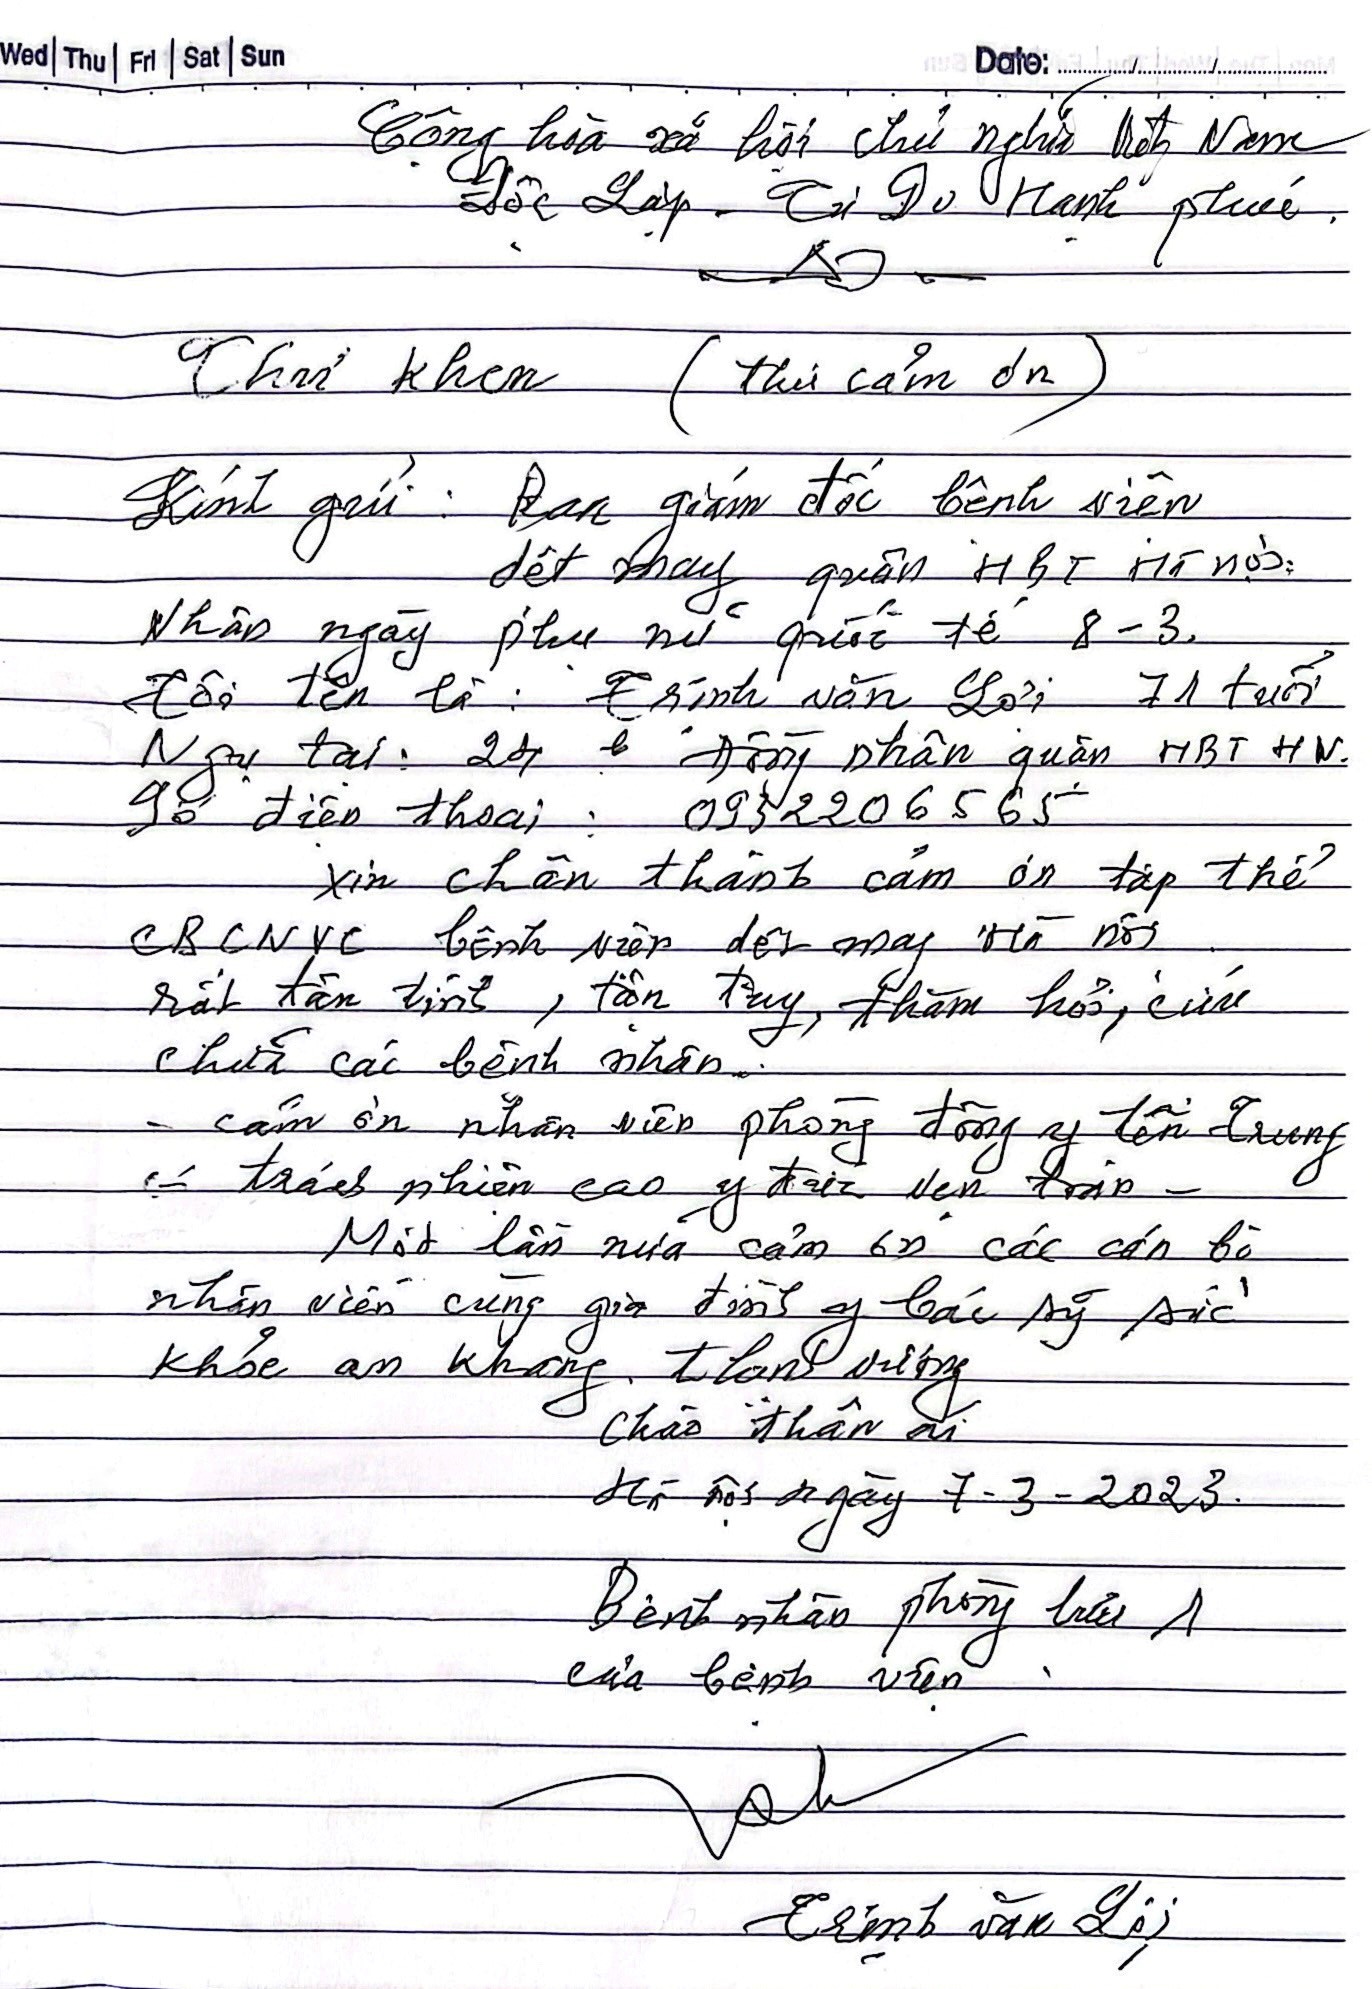 Wed | Thu | Fri | Sat | Sun Date:
Cộng hòa xã hội chủ nghĩa Việt Nam
Độc Lập - Tự Do Hạnh phúc.
Thư khen (thư cảm ơn)
Kính gửi: Ban giám đốc bệnh viện
dệt may quận HBT Hà nội:
Nhân ngày phụ nữ quốc tế 8-3.
Tôi tên là: Trịnh văn Lợi 71 tuổi
Ngụ tại: Đồng nhân quận HBT HN.
Số điện thoại: 0932206565
Xin chân thành cảm ơn tập thể
CBCNVC bệnh viện dệt may Hà nội
rất tân tình, tận tụy, thăm hỏi, cứu
chữa các bệnh nhân.
- cảm ơn nhân viên phòng đông y tên Trung
có trách nhiệm cao y đức vẹn toàn -
Một lần nữa cảm ơn các cán bộ
nhân viên cùng gia đình y bác sỹ sức
khỏe an khang. thịnh vượng
Chào thân ái
Hà nội ngày 7-3-2023.
Bệnh nhân phòng lưu 1
của bệnh viện
Trịnh văn Lợi